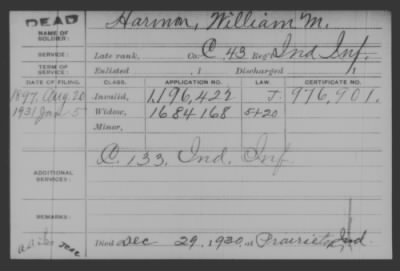 DEAD
NAME OF SOLDIER: Harmon, William M.
SERVICE: Late rank, Co. C, 43 Reg't Ind Inf.
TERM OF SERVICE: Enlisted , 1 Discharged , 1
DATE OF FILING. CLASS. APPLICATION NO. LAW. CERTIFICATE NO.
1897. Aug. 20 Invalid, 1,196,422 J. 976,901.
1931 Jan 5 Widow, 1684168 5+20
Minor,
ADDITIONAL SERVICES: C. 133, Ind. Inf.
REMARKS:
Died Dec 29, 1930, at Prairieton Ind.